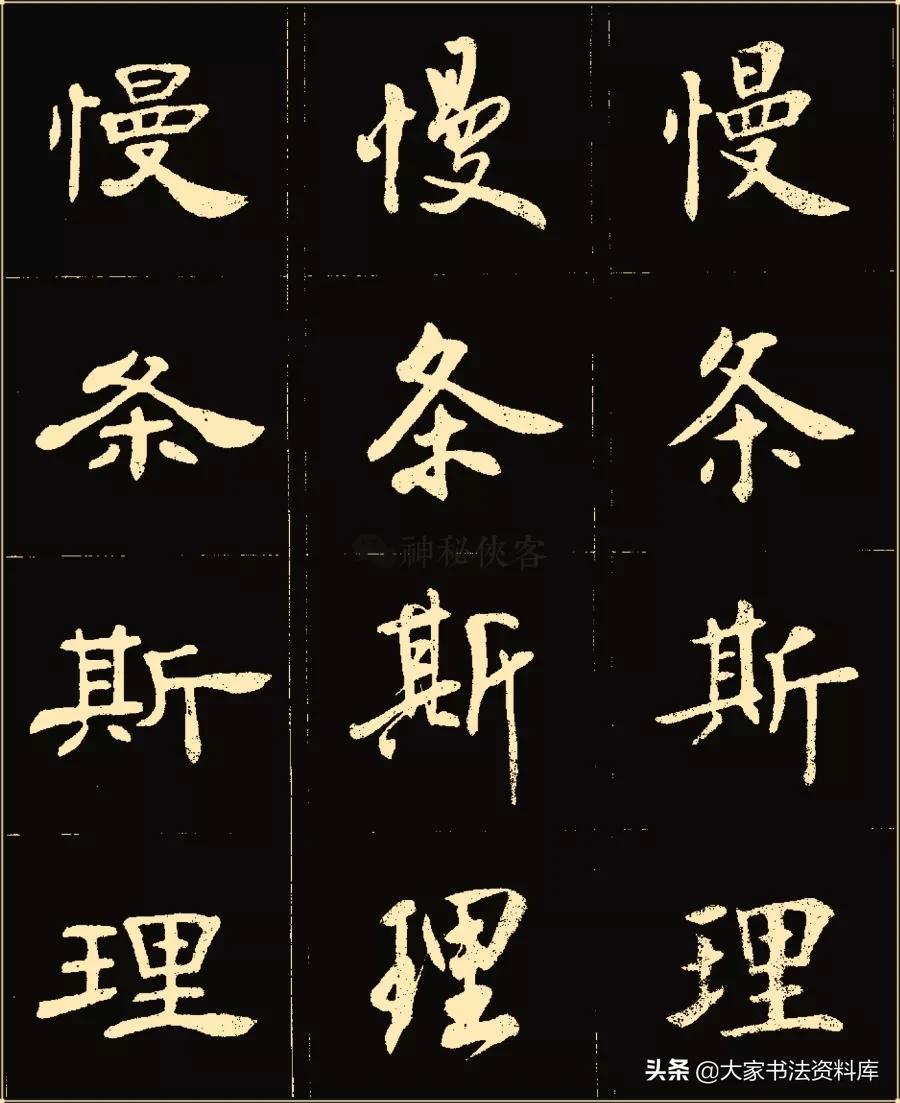 慢 慢 慢
条 条 条
神秘侠客
斯 斯 斯
理 理 理
头条 @大家书法资料库